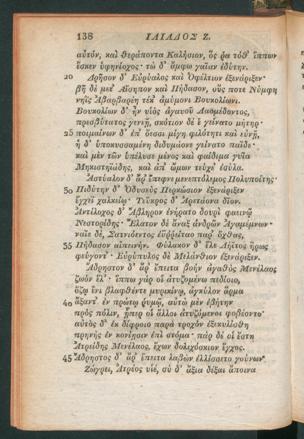 138 ΙΛΙΑΔΟΣ Ζ.
αὐτόν, καὶ θεράποντα Καλήσιον, ὅς ῥα τόθ' ἵππων
ἔσκεν ὑφηνίοχος· τὼ δ' ἄμφω γαῖαν ἐδύτην.
20 Δρῆσον δ' Εὐρύαλος καὶ Ὀφέλτιον ἐξενάριξεν·
βῆ δὲ μετ' Αἴσηπον καὶ Πήδασον, οὕς ποτε Νύμφη
νηῒς Ἀβαρβαρέη τέκ' ἀμύμονι Βουκολίωνι.
Βουκολίων δ' ἦν υἱὸς ἀγαυοῦ Λαομέδοντος,
πρεσβύτατος γενεῇ, σκότιον δέ ἑ γείνατο μήτηρ·
25 ποιμαίνων δ' ἐπ' ὄεσσι μίγη φιλότητι καὶ εὐνῇ,
ἡ δ' ὑποκυσσαμένη διδυμάονε γείνατο παῖδε·
καὶ μὲν τῶν ὑπέλυσε μένος καὶ φαίδιμα γυῖα
Μηκιστηϊάδης, καὶ ἀπ' ὤμων τεύχε' ἐσύλα.
Ἀστύαλον δ' ἄρ' ἔπεφνε μενεπτόλεμος Πολυποίτης·
30 Πιδύτην δ' Ὀδυσεὺς Περκώσιον ἐξενάριξεν
ἔγχεϊ χαλκείῳ· Τεῦκρος δ' Ἀρετάονα δῖον.
Ἀντίλοχος δ' Ἄβληρον ἐνήρατο δουρὶ φαεινῷ
Νεστορίδης· Ἔλατον δὲ ἄναξ ἀνδρῶν Ἀγαμέμνων·
ναῖε δέ, Σατνιόεντος ἐϋῤῥείταο παρ' ὄχθας,
35 Πήδασον αἰπεινήν. Φύλακον δ' ἕλε Λήϊτος ἥρως
φεύγοντ'· Εὐρύπυλος δὲ Μελάνθιον ἐξενάριξεν.
Ἄδρηστον δ' ἄρ' ἔπειτα βοὴν ἀγαθὸς Μενέλαος
ζωὸν ἕλ'· ἵππω γάρ οἱ ἀτυζομένω πεδίοιο,
ὄζῳ ἔνι βλαφθέντε μυρικίνῳ, ἀγκύλον ἅρμα
40 ἄξαντ' ἐν πρώτῳ ῥυμῷ, αὐτὼ μὲν ἐβήτην
πρὸς πόλιν, ᾗπερ οἱ ἄλλοι ἀτυζόμενοι φοβέοντο·
αὐτὸς δ' ἐκ δίφροιο παρὰ τροχὸν ἐξεκυλίσθη
πρηνὴς ἐν κονίῃσιν ἐπὶ στόμα· πὰρ δέ οἱ ἔστη
Ἀτρείδης Μενέλαος, ἔχων δολιχόσκιον ἔγχος.
45 Ἄδρηστος δ' ἄρ' ἔπειτα λαβὼν ἐλλίσσετο γούνων·
Ζώγρει, Ἀτρέος υἱέ, σὺ δ' ἄξια δέξαι ἄποινα